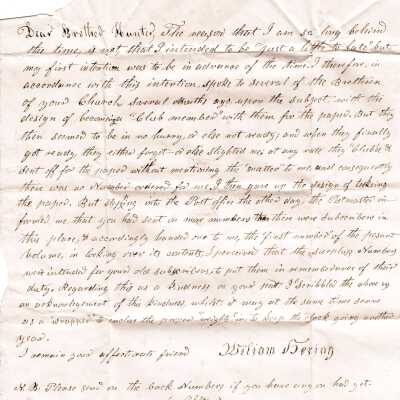 Dear Brother Hunter, The reason that I am so long behind
the time, is not that I intended to be "just a little to late" but
my first intention was to be in advance of the time. I therefore, in
accordance with this intention, spoke to several of the Brethren
of your Church several months ago upon the subject with the
design of becoming a "Club member" with them for the paper. But they
then seemed to be in no hurry, or else not ready; and when they finally
got ready, they either forgot or else slighted me, at any rate they Clubb'd &
sent off for the paper without mentioning the matter to me, and consequently
there was no Number ordered for me, I then gave up the design of taking
the paper. But stepping into the Post office the other day, the Postmaster in
formed me that you had sent on more numbers than there were subscribers in
this place, & accordingly handed out to me, the first number of the present
Volume, in looking over its contents, I perceived that the Surplus Numbers
were intended for your old subscribers, to put them in remembrance of their
duty. Regarding this as a Kindness on your part I scribbled the above as
an acknowledgement of this kindness, whilst it may at the same time serve
as a wrapper to enclose the proper "weight" to keep the clock going another
year.
I remain your affectionate friend William Hering
N.B. Please send on the back Numbers if you have any on hand yet.